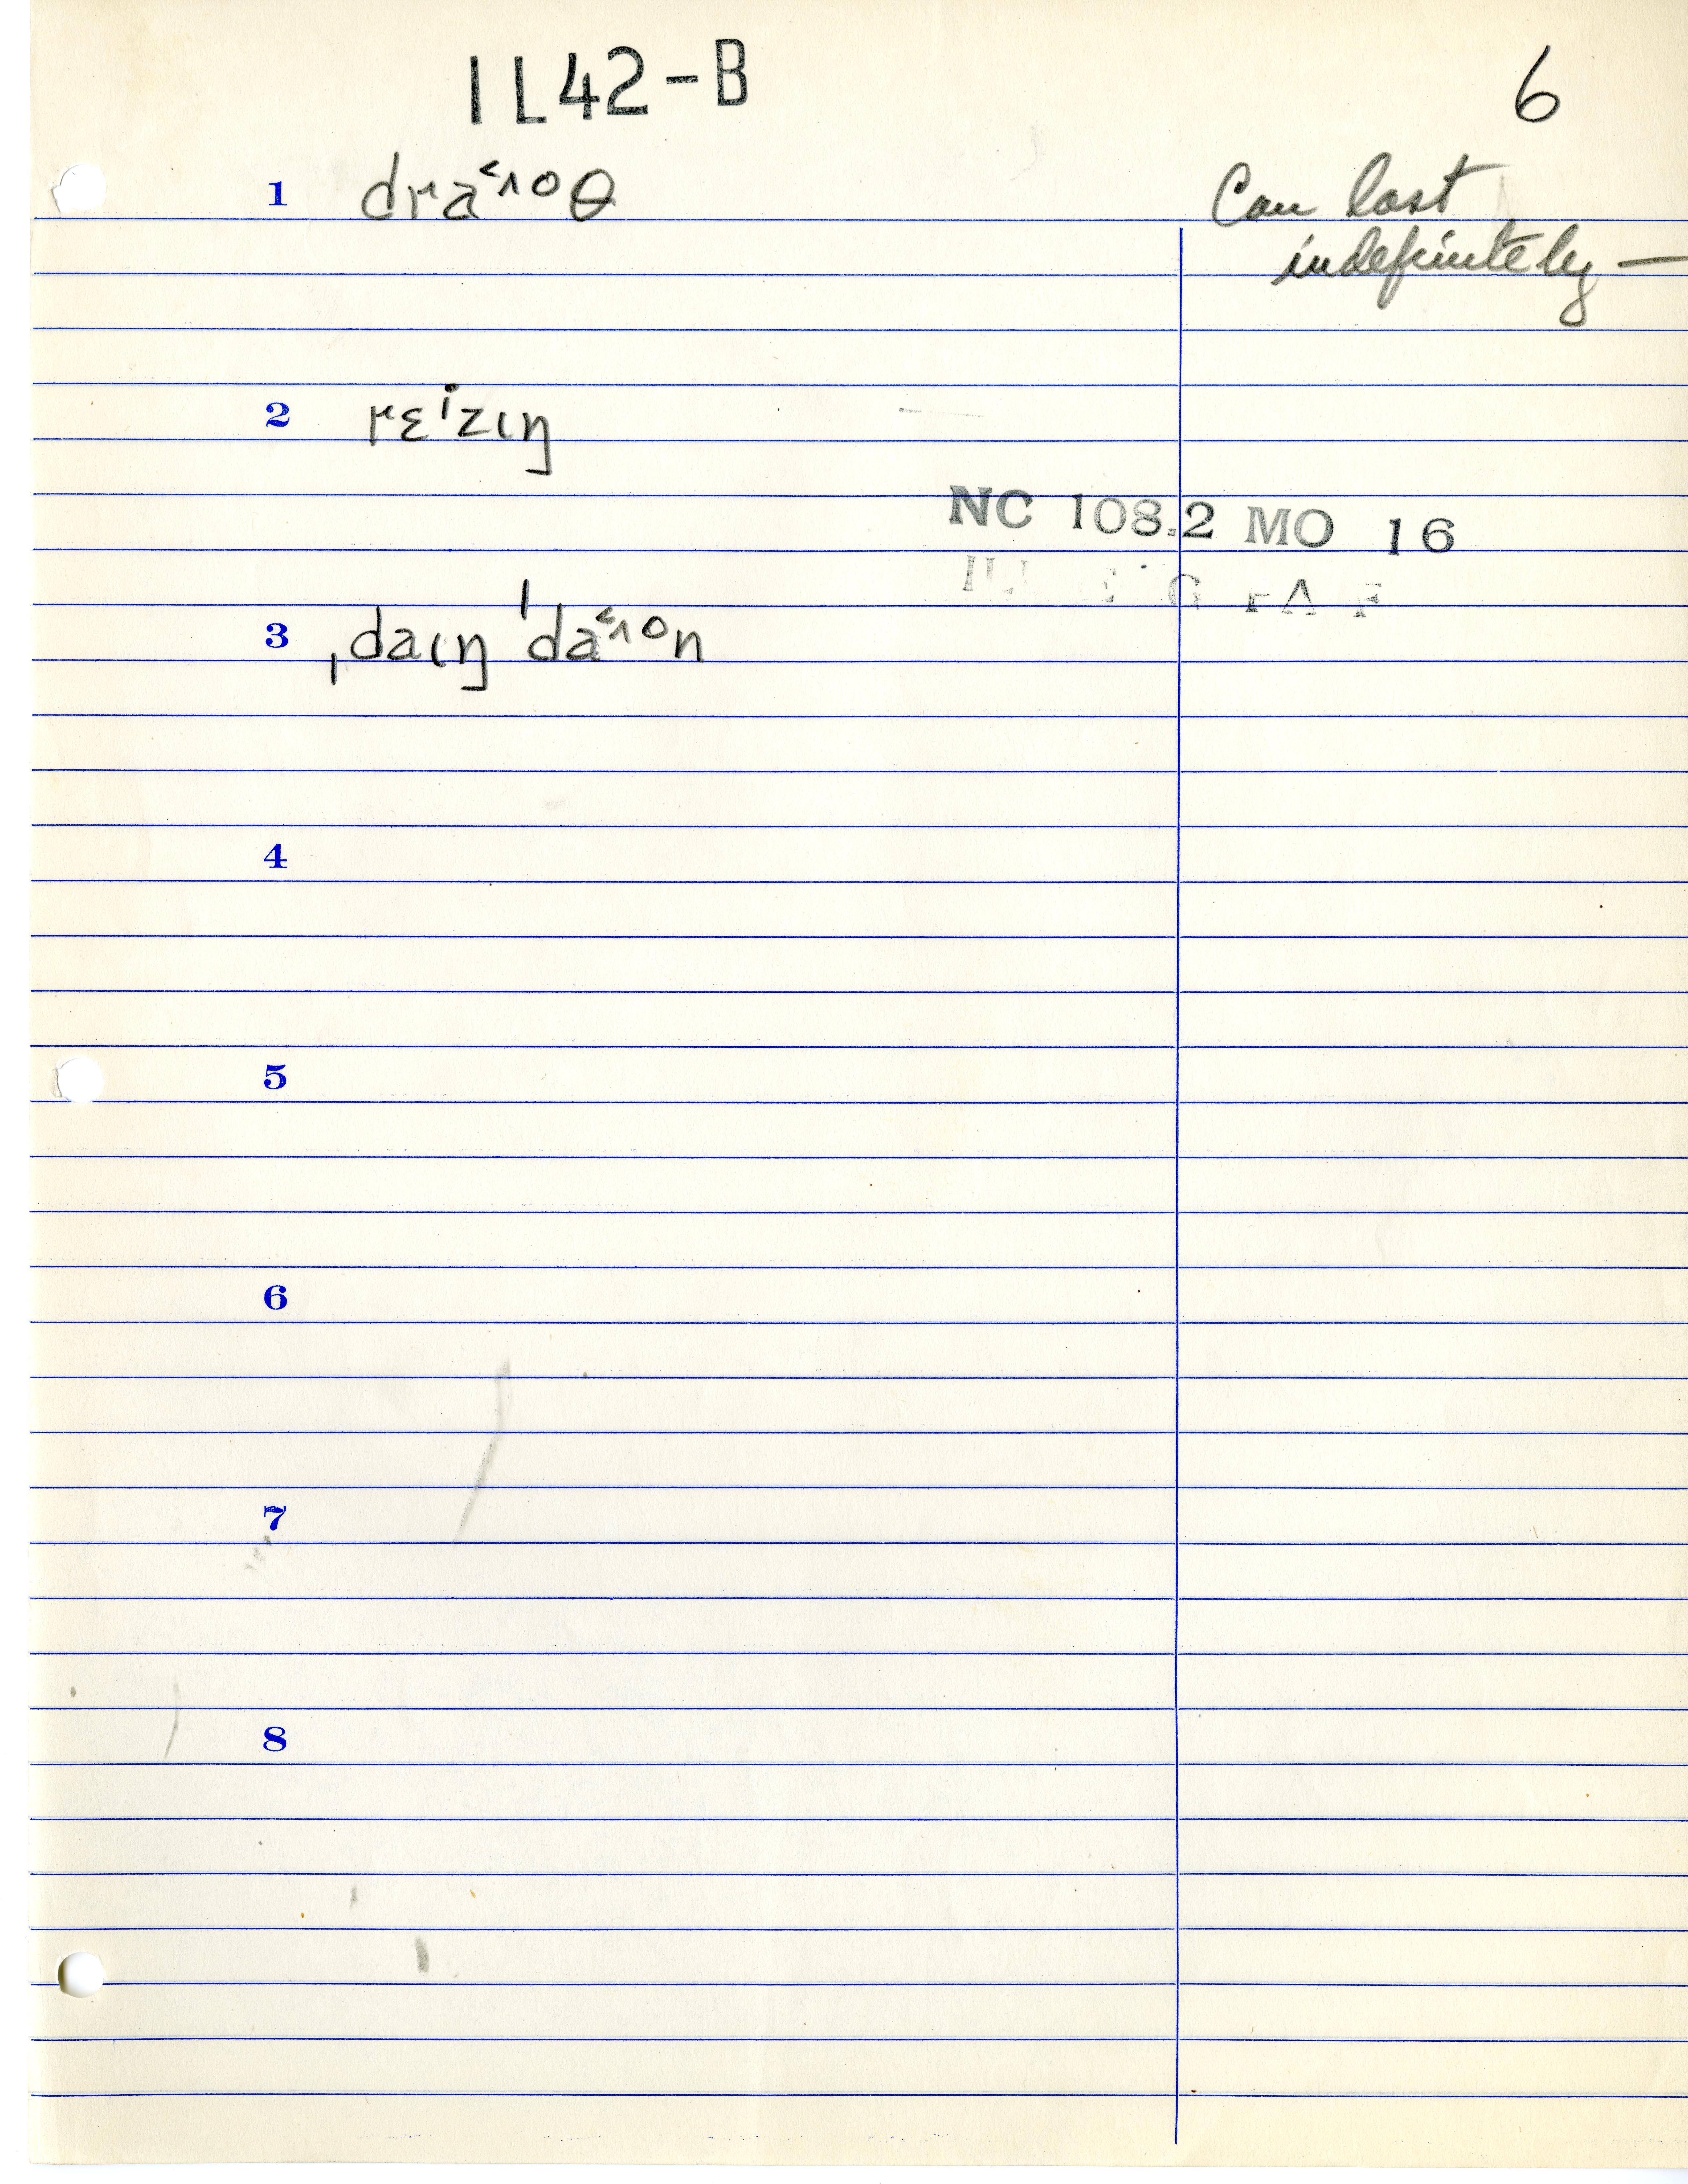 IL42-B
6
1 draᵋ˄ᵒθ
Can last
indefinitely —
2 rɛⁱzɩŋ
NC 108.2 MO 16
3 ˌdaɩŋ ˈdaᵋ˄ᵒn
4
5
6
7
8